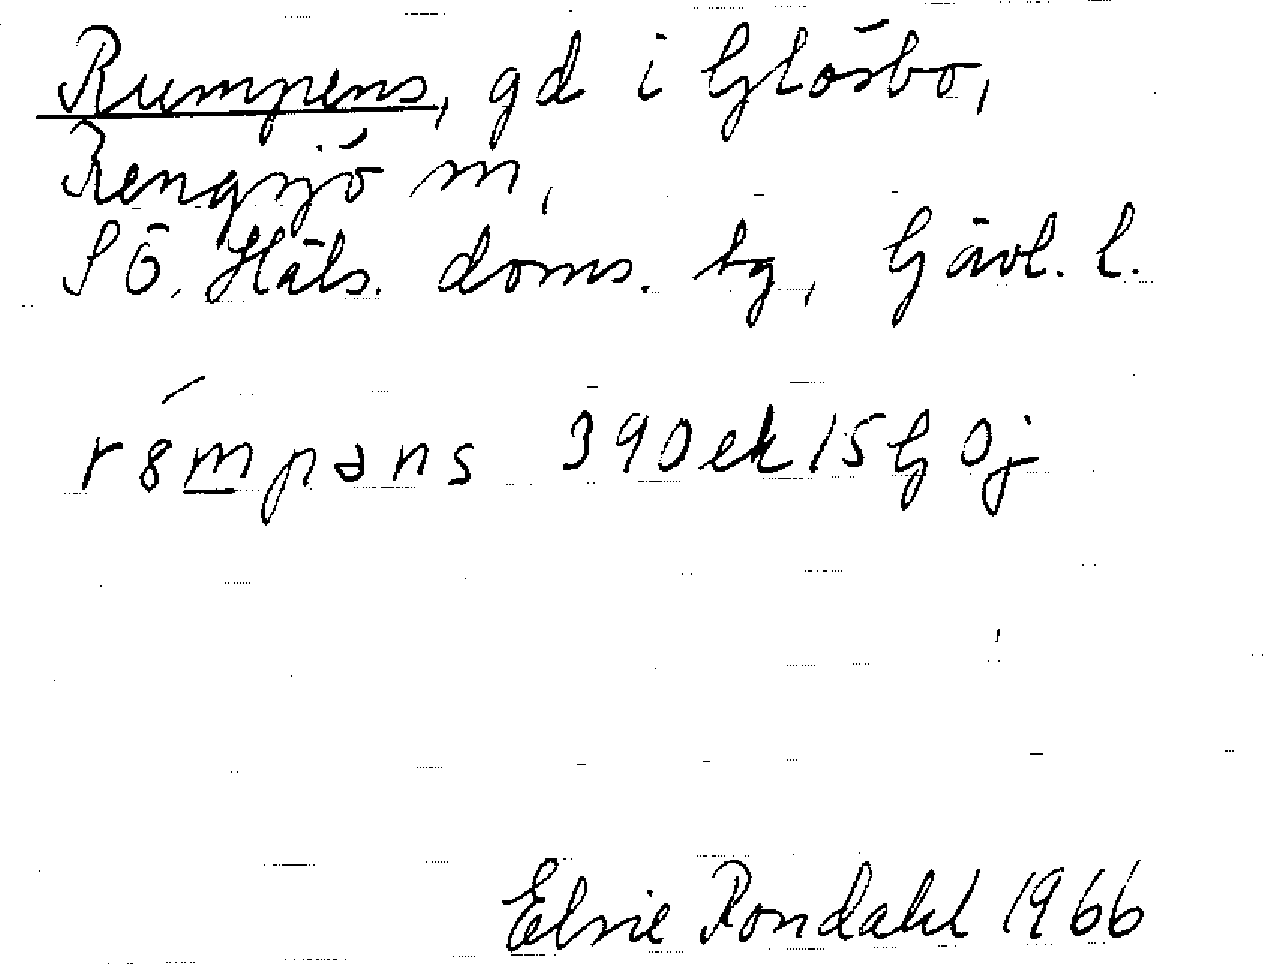 Rumpens, gd i Glösbo,
Rengsjö sn,
SÖ. Häls. doms. tg, Gävl. l.
rómpəns 390ek15G0j
Elsie Rondahl 1966